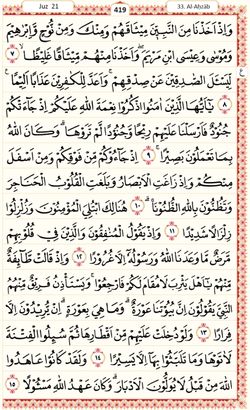 Juz 21 419 33. Al-Aḥzāb
وَإِذْ أَخَذْنَا مِنَ النَّبِيِّينَ مِيثَاقَهُمْ وَمِنكَ وَمِن نُّوحٍ وَإِبْرَٰهِيمَ
وَمُوسَىٰ وَعِيسَى ابْنِ مَرْيَمَ ۖ وَأَخَذْنَا مِنْهُم مِّيثَٰقًا غَلِيظًا
٧ لِّيَسْـَٔلَ الصَّٰدِقِينَ عَن صِدْقِهِمْ ۚ وَأَعَدَّ لِلْكَٰفِرِينَ عَذَابًا أَلِيمًا
٨ يَٰٓأَيُّهَا الَّذِينَ ءَامَنُوا اذْكُرُوا نِعْمَةَ اللَّهِ عَلَيْكُمْ إِذْ جَآءَتْكُمْ
جُنُودٌ فَأَرْسَلْنَا عَلَيْهِمْ رِيحًا وَجُنُودًا لَّمْ تَرَوْهَا ۚ وَكَانَ اللَّهُ
بِمَا تَعْمَلُونَ بَصِيرًا ٩ إِذْ جَآءُوكُم مِّن فَوْقِكُمْ وَمِنْ أَسْفَلَ
مِنكُمْ وَإِذْ زَاغَتِ الْأَبْصَٰرُ وَبَلَغَتِ الْقُلُوبُ الْحَنَاجِرَ
وَتَظُنُّونَ بِاللَّهِ الظُّنُونَا ١٠ هُنَالِكَ ابْتُلِيَ الْمُؤْمِنُونَ وَزُلْزِلُوا
زِلْزَالًا شَدِيدًا ١١ وَإِذْ يَقُولُ الْمُنَٰفِقُونَ وَالَّذِينَ فِي قُلُوبِهِم
مَّرَضٌ مَّا وَعَدَنَا اللَّهُ وَرَسُولُهُۥٓ إِلَّا غُرُورًا ١٢ وَإِذْ قَالَت طَّآئِفَةٌ
مِّنْهُمْ يَٰٓأَهْلَ يَثْرِبَ لَا مُقَامَ لَكُمْ فَارْجِعُوا ۚ وَيَسْتَـْٔذِنُ فَرِيقٌ مِّنْهُمُ
النَّبِيَّ يَقُولُونَ إِنَّ بُيُوتَنَا عَوْرَةٌ وَمَا هِيَ بِعَوْرَةٍ ۖ إِن يُرِيدُونَ إِلَّا
فِرَارًا ١٣ وَلَوْ دُخِلَتْ عَلَيْهِم مِّنْ أَقْطَارِهَا ثُمَّ سُئِلُوا الْفِتْنَةَ
لَـَٔاتَوْهَا وَمَا تَلَبَّثُوا بِهَآ إِلَّا يَسِيرًا ١٤ وَلَقَدْ كَانُوا عَٰهَدُوا
اللَّهَ مِن قَبْلُ لَا يُوَلُّونَ الْأَدْبَٰرَ ۚ وَكَانَ عَهْدُ اللَّهِ مَسْـُٔولًا ١٥